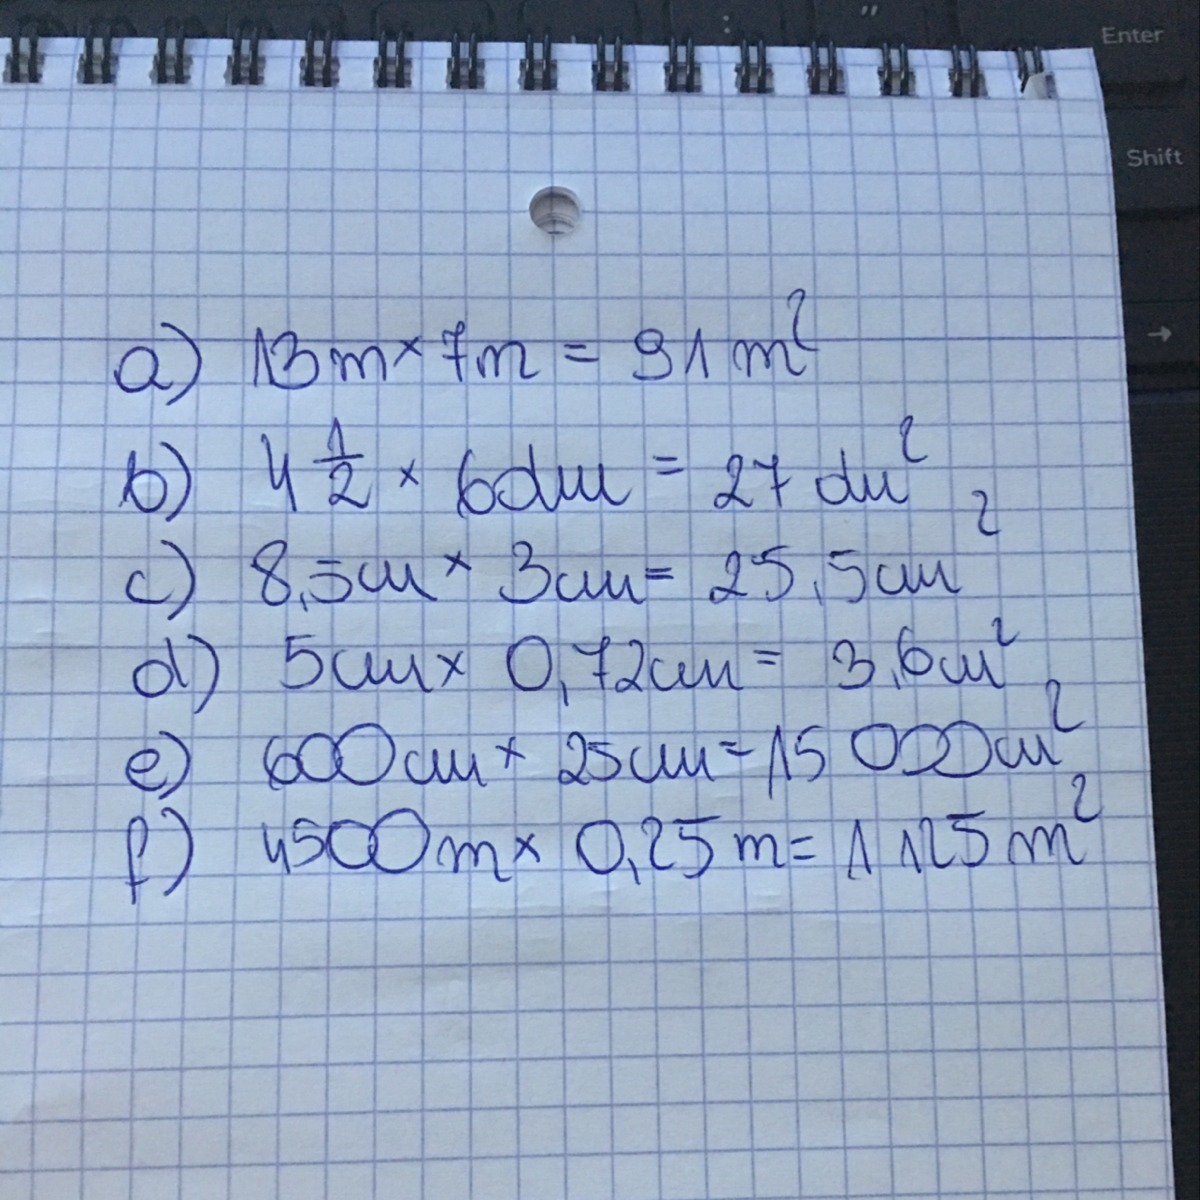 "
:
Enter
Shift
→
a) 13m × 7m = 91 m²
b) 4 1/2 × 6dm = 27 dm²
c) 8,5cm × 3cm = 25,5cm²
d) 5cm × 0,72cm = 3,6cm²
e) 600cm × 25cm = 15 000cm²
f) 4500m × 0,25m = 1 125m²